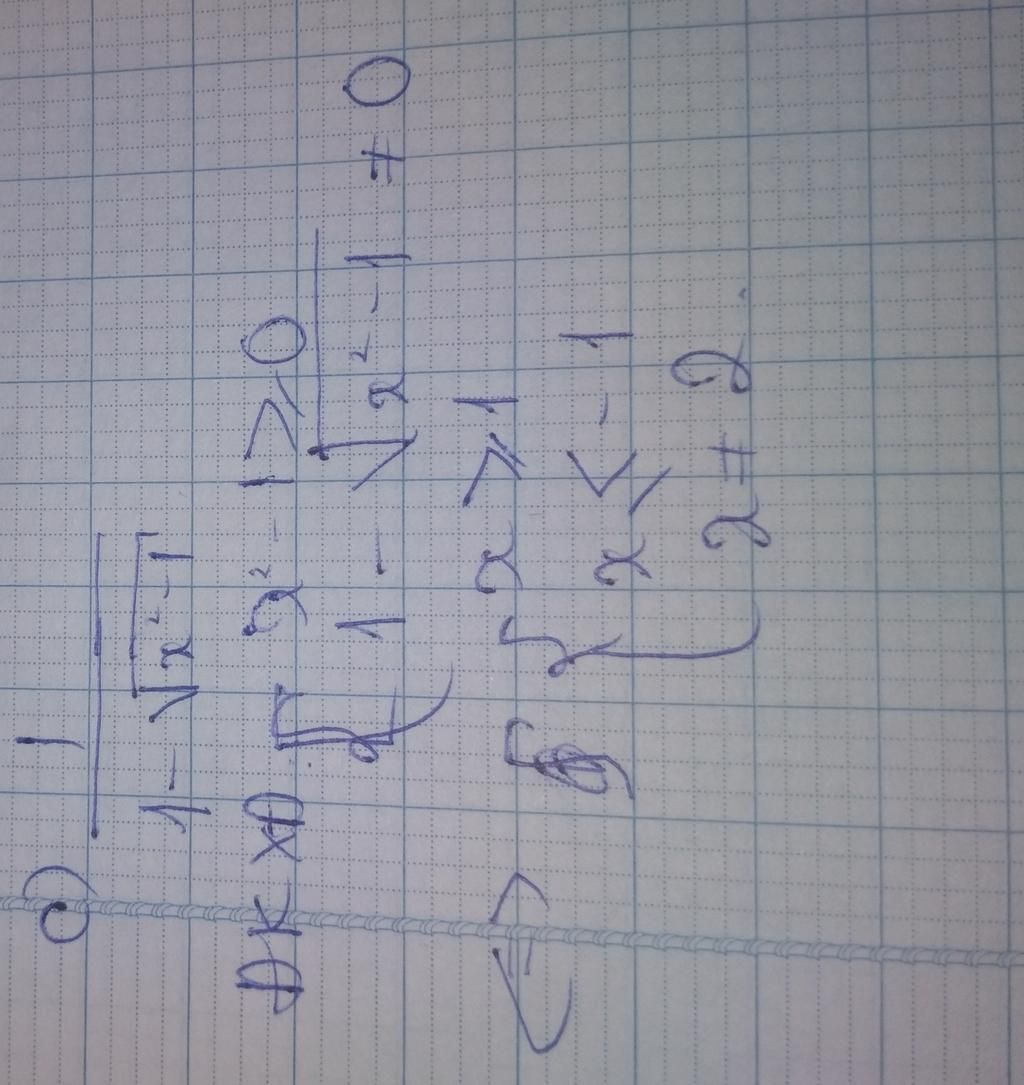 c) 1
1 - √x² - 1
ĐKXĐ { x² - 1 ≥ 0
1 - √x² - 1 ≠ 0
⇔ { x ≥ 1
x ≤ - 1
x ≠ 2